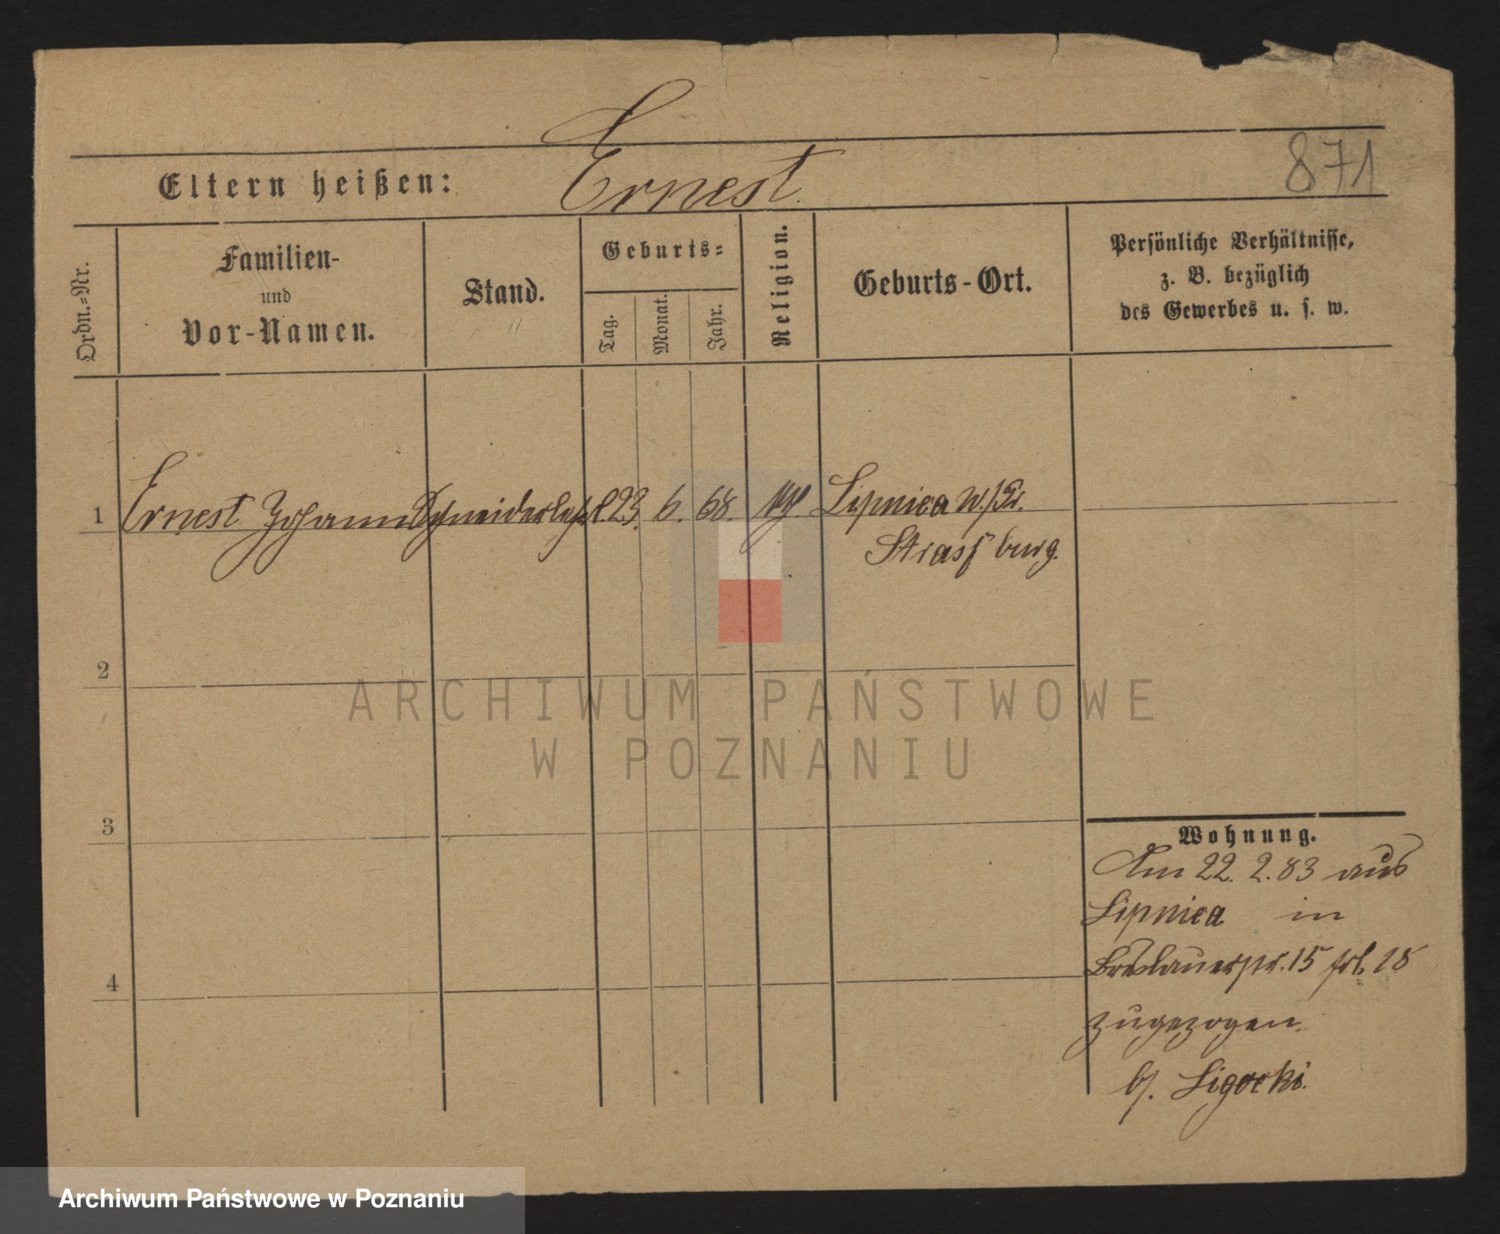 871
Eltern heißen: Ernest
Ordn.-Nr.
Familien-
und
Vor-Namen.
Stand.
Geburts-
Tag.
Monat.
Jahr.
Religion.
Geburts-Ort.
Persönliche Verhältnisse,
z. B. bezüglich
des Gewerbes u. s. w.
1 Ernest Johann Schneiderlehrl 23. 6. 68. Lipnica W/Pr.
Strassburg.
2
3
4
Wohnung.
Am 22. 2. 83 aus
Lipnica in
Breslauerstr. 15 18
zugezogen.
b/. Ligocki.
ARCHIWUM PAŃSTWOWE
W POZNANIU
Archiwum Państwowe w Poznaniu